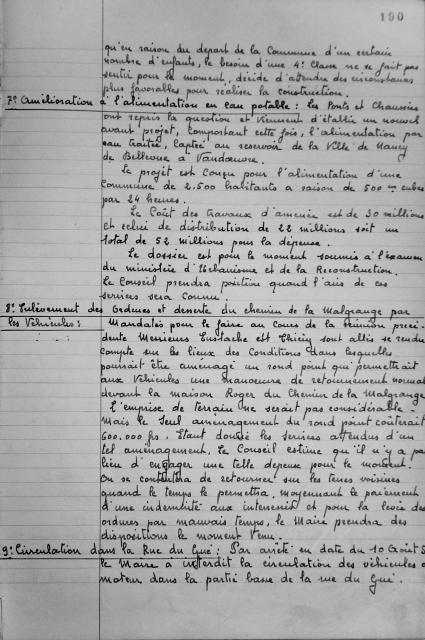 190
qu'en raison du départ de la Commune d'un certain
nombre d'enfants, le besoin d'une 4e Classe ne se fait pas
sentir pour le moment, décide d'attendre des circonstances
plus favorables pour réaliser la construction.
7° Amélioration à l'alimentation en eau potable : les Ponts et Chaussées
ont repris la question et viennent d'établir un nouvel
avant projet, comportant cette fois, l'alimentation par
eau traitée, captée au réservoir de la Ville de Nancy
de Bellevue à Vandoeuvre.
Le projet est conçu pour l'alimentation d'une
Commune de 2.500 habitants à raison de 500 cubes
par 24 heures.
Le Coût des travaux d'amenée est de 30 millions
et celui de distribution de 22 millions soit un
total de 52 millions pour la dépense.
Le dossier est pour le moment soumis à l'examen
du ministère d'Urbanisme et de la Reconstruction.
Le Conseil prendra position quand l'avis de ces
services sera connu.
8° Enlèvement des Ordures et desserte du chemin de la Malgrange par
les Véhicules : Mandatés pour le faire au cours de la réunion précé-
dente Messieurs Eustache et Thiéry sont allés se rendre
compte sur les lieux des Conditions dans lesquelles
pourrait être aménagé un rond point qui permettrait
aux Véhicules une manoeuvre de retournement normal
devant la maison Roger du Chemin de la Malgrange
L'emprise de terrain ne serait pas considérable -
Mais le seul aménagement du rond point coûterait
600.000 frs. Etant donné les services attendus d'un
tel aménagement, le Conseil estime qu'il n'y a pas
lieu d'engager une telle dépense pour le moment.
On se contentera de retourner sur les terres voisines
quand le temps le permettra, moyennant le paiement
d'une indemnité aux intéressés et pour la levée des
ordures par mauvais temps, le Maire prendra des
dispositions le moment venu.
9° Circulation dans la Rue du Gué : Par arrêté en date du 10 Août
le Maire a interdit la circulation des véhicules à
moteur dans la partie basse de la rue du Gué.